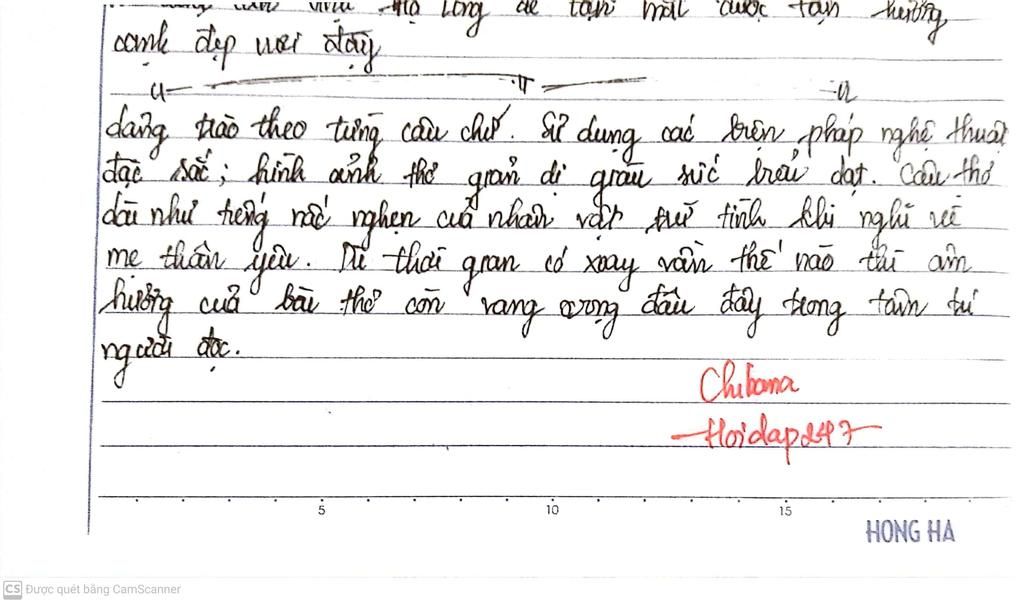 Hạ Long để tận mắt được tận hưởng
cảnh đẹp nơi đây
dâng trào theo từng câu chữ. Sử dụng các biện pháp nghệ thuật
đặc sắc; hình ảnh thơ giản dị giàu sức biểu đạt. Câu thơ
dài như tiếng nấc nghẹn của nhân vật trữ tình khi nghĩ về
mẹ thân yêu. Dù thời gian có xoay vần thế nào thì âm
hưởng của bài thơ còn vang vọng đâu đây trong tâm tư
người đọc.
Chibana
Hoidap247
5 10 15
HONG HA
CS Được quét bằng CamScanner